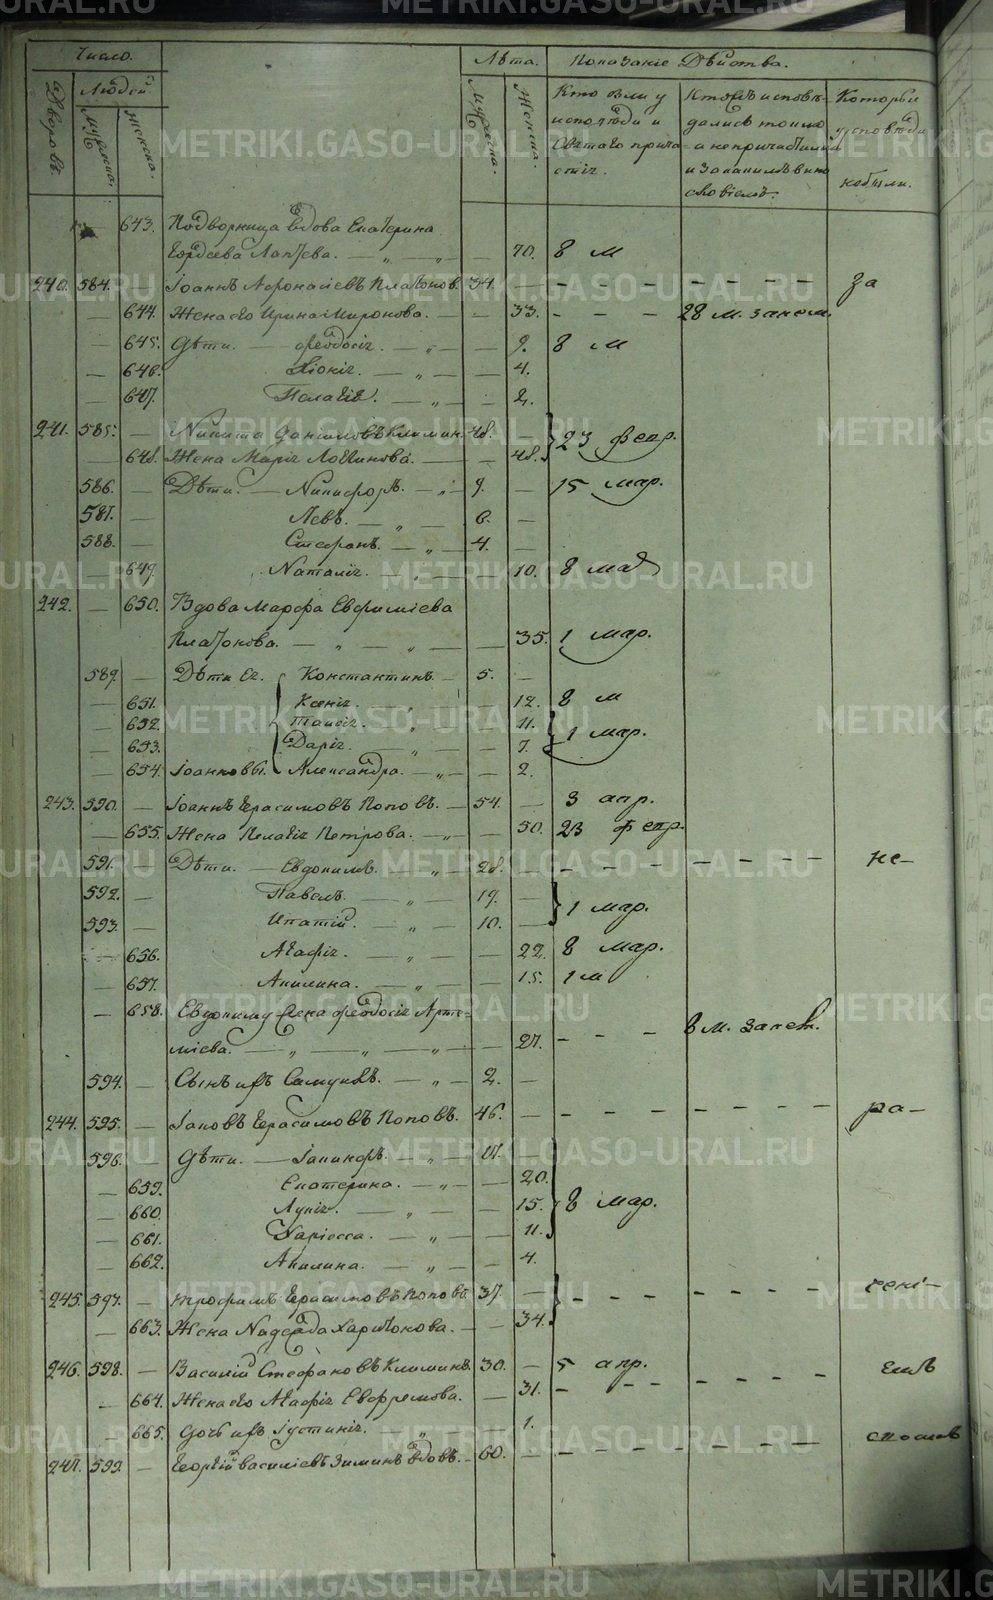 Число. Лѣта. Показаніе Дѣйства.
Дворовъ. Людей Мужеска. Женска. Мужеска. Женска. Кто были у исповѣди и Святаго прича-стія. Кто исповѣ-дались токмо а непричастились и за какимъ вино-словіемъ. Которыи у исповѣди небыли.
643. Подворница вдова Екатерина
Гордѣева Лаптева. 70. 8 м
240. 584. Іоаннъ Аѳонасіевъ Платонов. 34. за
644. Жена его Ирина Миронова. 33. 28 м. запом.
645. Дѣти. Ѳеодосія. 9. 8 м
646. Хіонія. 4.
647. Пелагія. 2.
241. 585. Никита Даниловъ Климин. 48. 23 февр.
648. Жена Марія Логинова. 48.
586. Дѣти. Никифоръ. 9. 15 мар.
587. Левъ. 6.
588. Стефанъ. 4.
649. Наталія. 10. 8 мар
242. 650. Вдова Марѳа Евфиміева
Платонова. 35. 1 мар.
589. Дѣти ея. Константинъ. 5.
651. Ксенія. 12. 8 м
652. Таисія. 11. 1 мар.
653. Дарія. 7.
654. Іоанновы. Александра. 2.
243. 590. Іоаннъ Герасимовъ Поповъ. 54. 3 апр.
655. Жена Пелагія Петрова. 50. 23 февр.
591. Дѣти. Евдокимъ. 28. не-
592. Павелъ. 19. 1 мар.
593. Ипатій. 10.
656. Агафія. 22. 8 мар.
657. Акилина. 15. 1 м
658. Евдокиму жена Ѳеодосія Арте-
міева. 27. 8 м. запом.
594. Сынъ ихъ Самуилъ. 2.
244. 595. Іаковъ Герасимовъ Поповъ. 46. ра-
596. Дѣти.
659. Екатерина. 20. 8 мар.
660. 15.
661. Хариесса. 11.
662. Акилина. 4.
245. 597. Трофимъ Герасимовъ Поповъ. 37. чені-
663. Жена Надежда Харитонова. 34.
246. 598. Василій Стефановъ Климинъ. 30. 5 апр. емъ
664. Жена его Агафія Евфремова. 31.
665. Дочь ихъ Іустинія. 1.
247. 599. Георгій Василіевъ Зиминъ вдовъ. 60.
METRIKI.GASO-URAL.RU